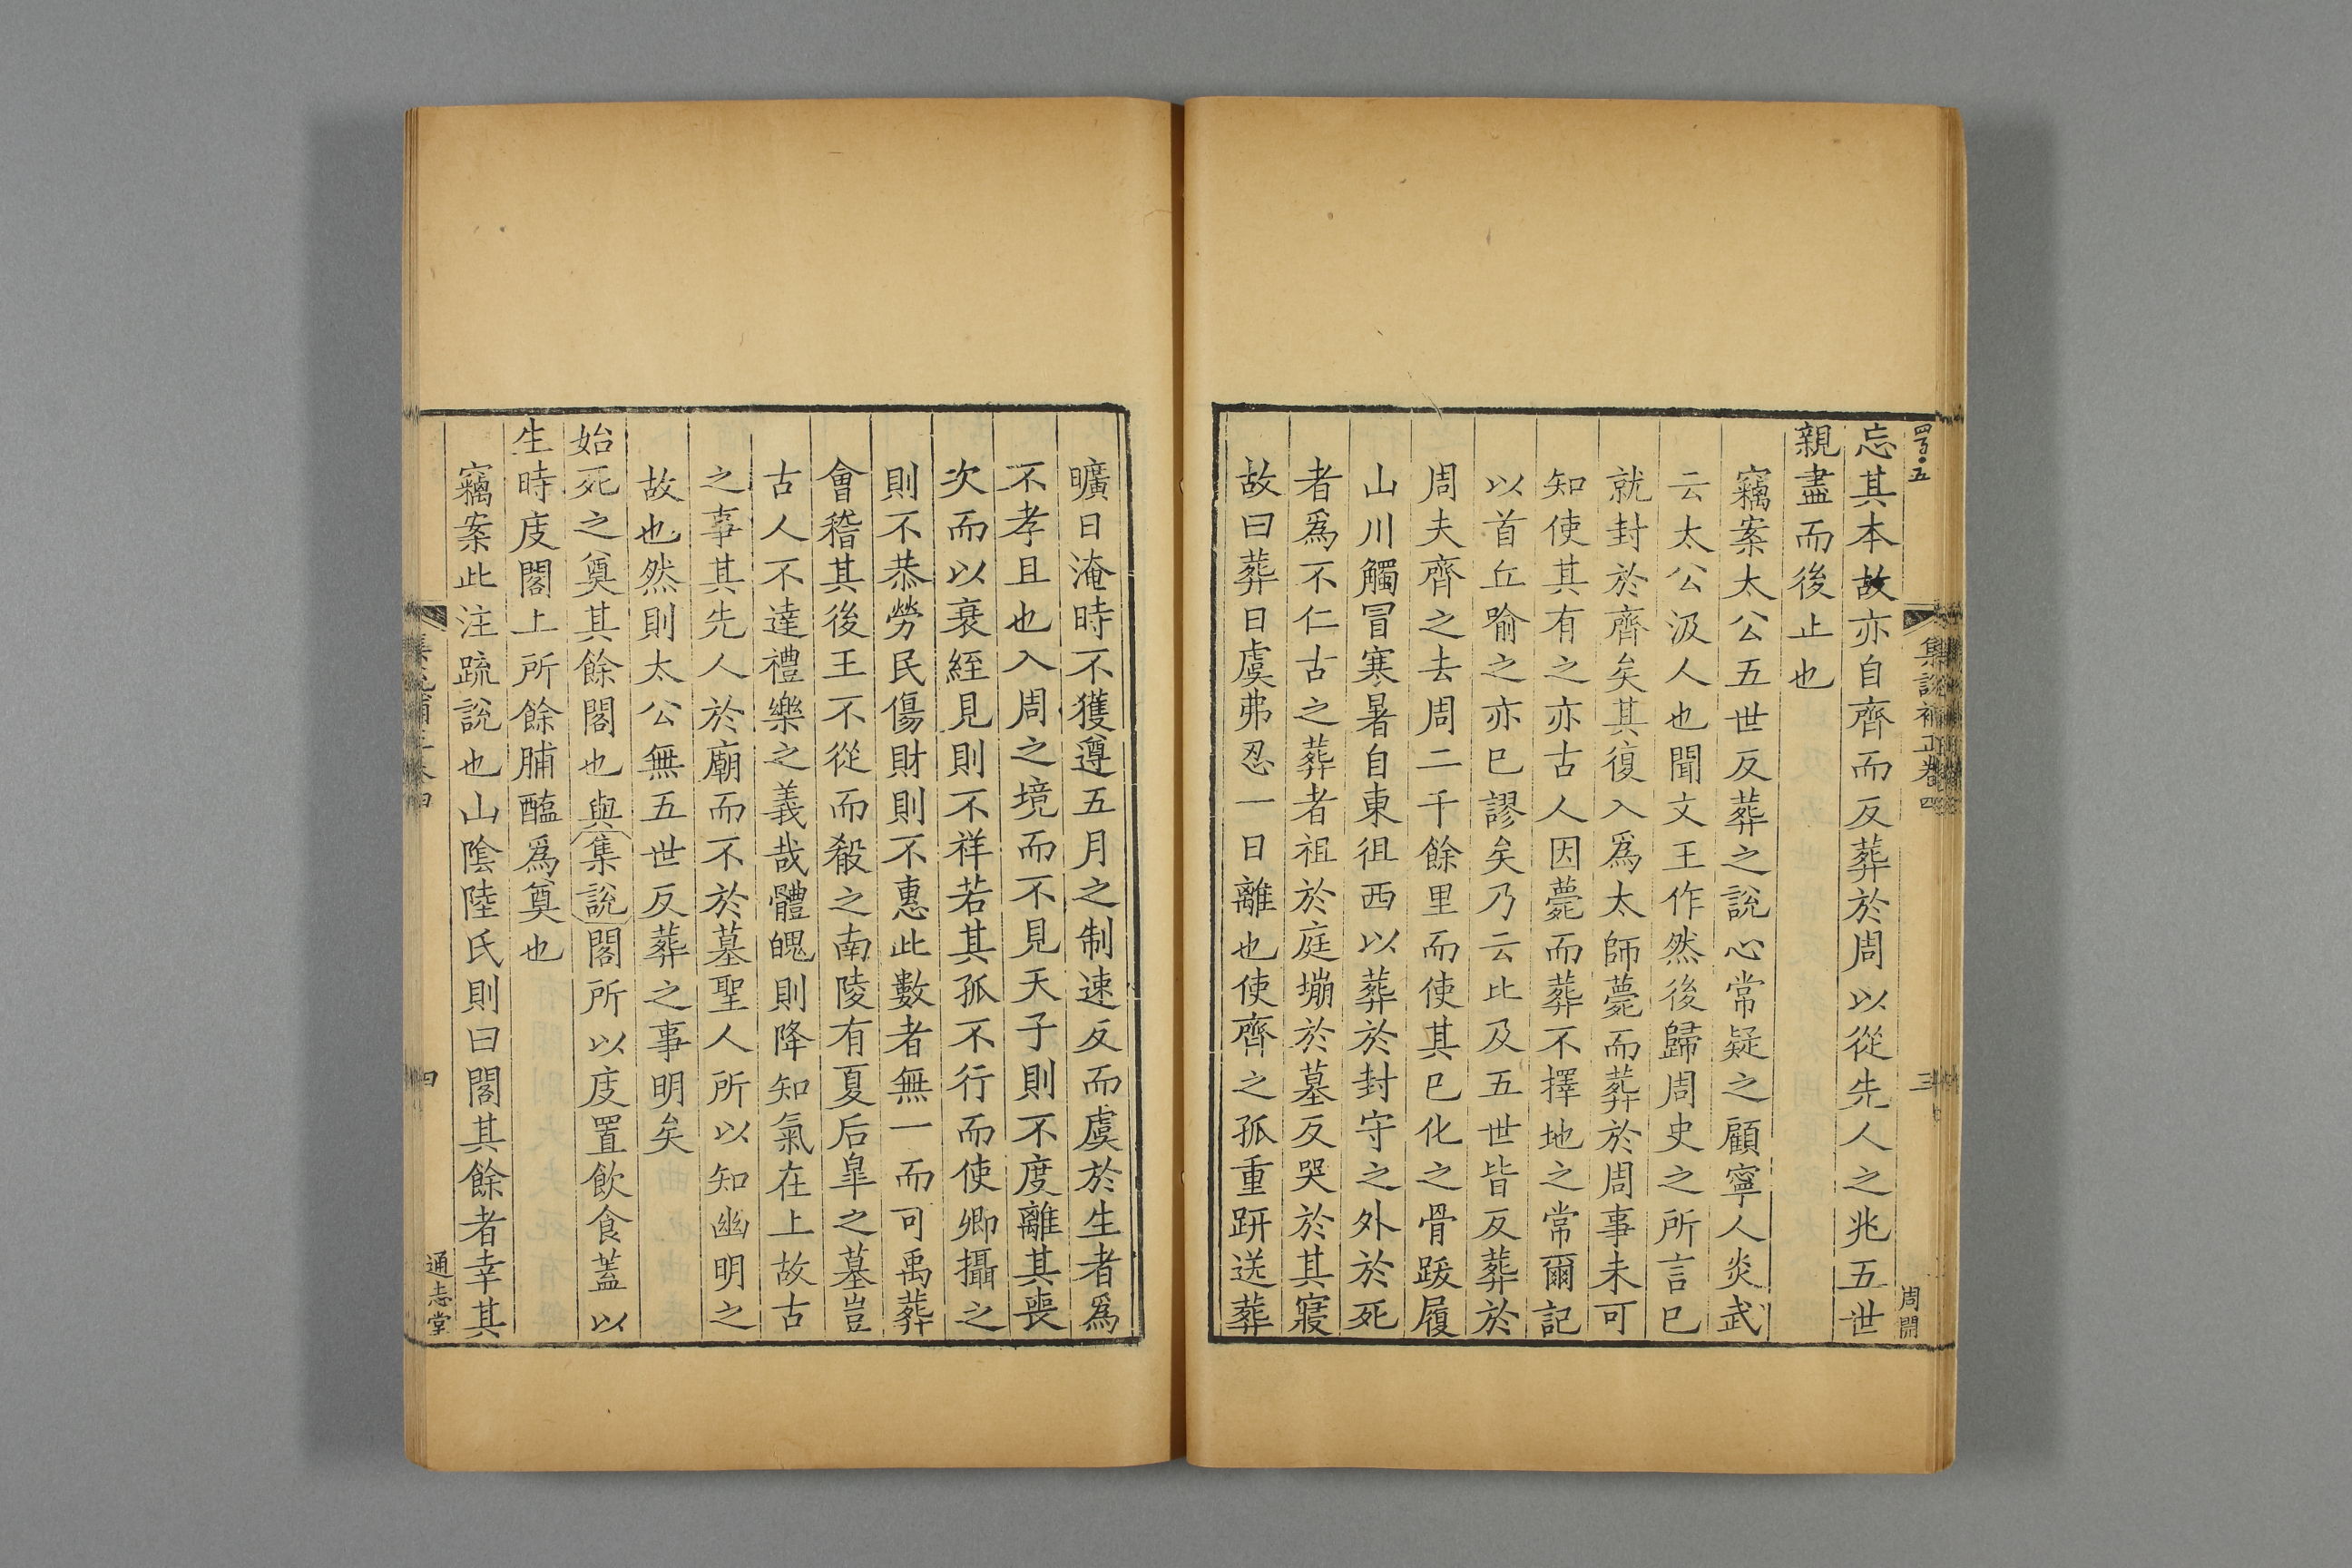 忘其本故亦自齊而反葬於周以從先人之兆五世
親盡而後止也
竊案太公五世反葬之說心常疑之顧寧人炎武
云太公汲人也聞文王作然後歸周史之所言已
就封於齊矣其復入爲太師薨而葬於周事未可
知使其有之亦古人因薨而葬不擇地之常爾記
以首丘喻之亦已謬矣乃云比及五世皆反葬於
周夫齊之去周二千餘里而使其已化之骨跋履
山川觸冒寒暑自東徂西以葬於封守之外於死
者爲不仁古之葬者祖於庭塴於墓反哭於其寢
故曰葬日虞弗忍一日離也使齊之孤重趼送葬
曠日淹時不獲遵五月之制速反而虞於生者爲
不孝且也入周之境而不見天子則不度離其喪
次而以衰絰見則不祥若其孤不行而使卿攝之
則不恭勞民傷財則不惠此數者無一而可禹葬
會稽其後王不從而殽之南陵有夏后皐之墓豈
古人不達禮樂之義哉體魄則降知氣在上故古
之事其先人於廟而不於墓聖人所以知幽明之
故也然則太公無五世反葬之事明矣
始死之奠其餘閣也與集說閣所以庋置飲食蓋以
生時庋閣上所餘脯醢爲奠也
竊案此注疏說也山陰陸氏則曰閣其餘者幸其
集說補正卷四
三
周開
四
通志堂